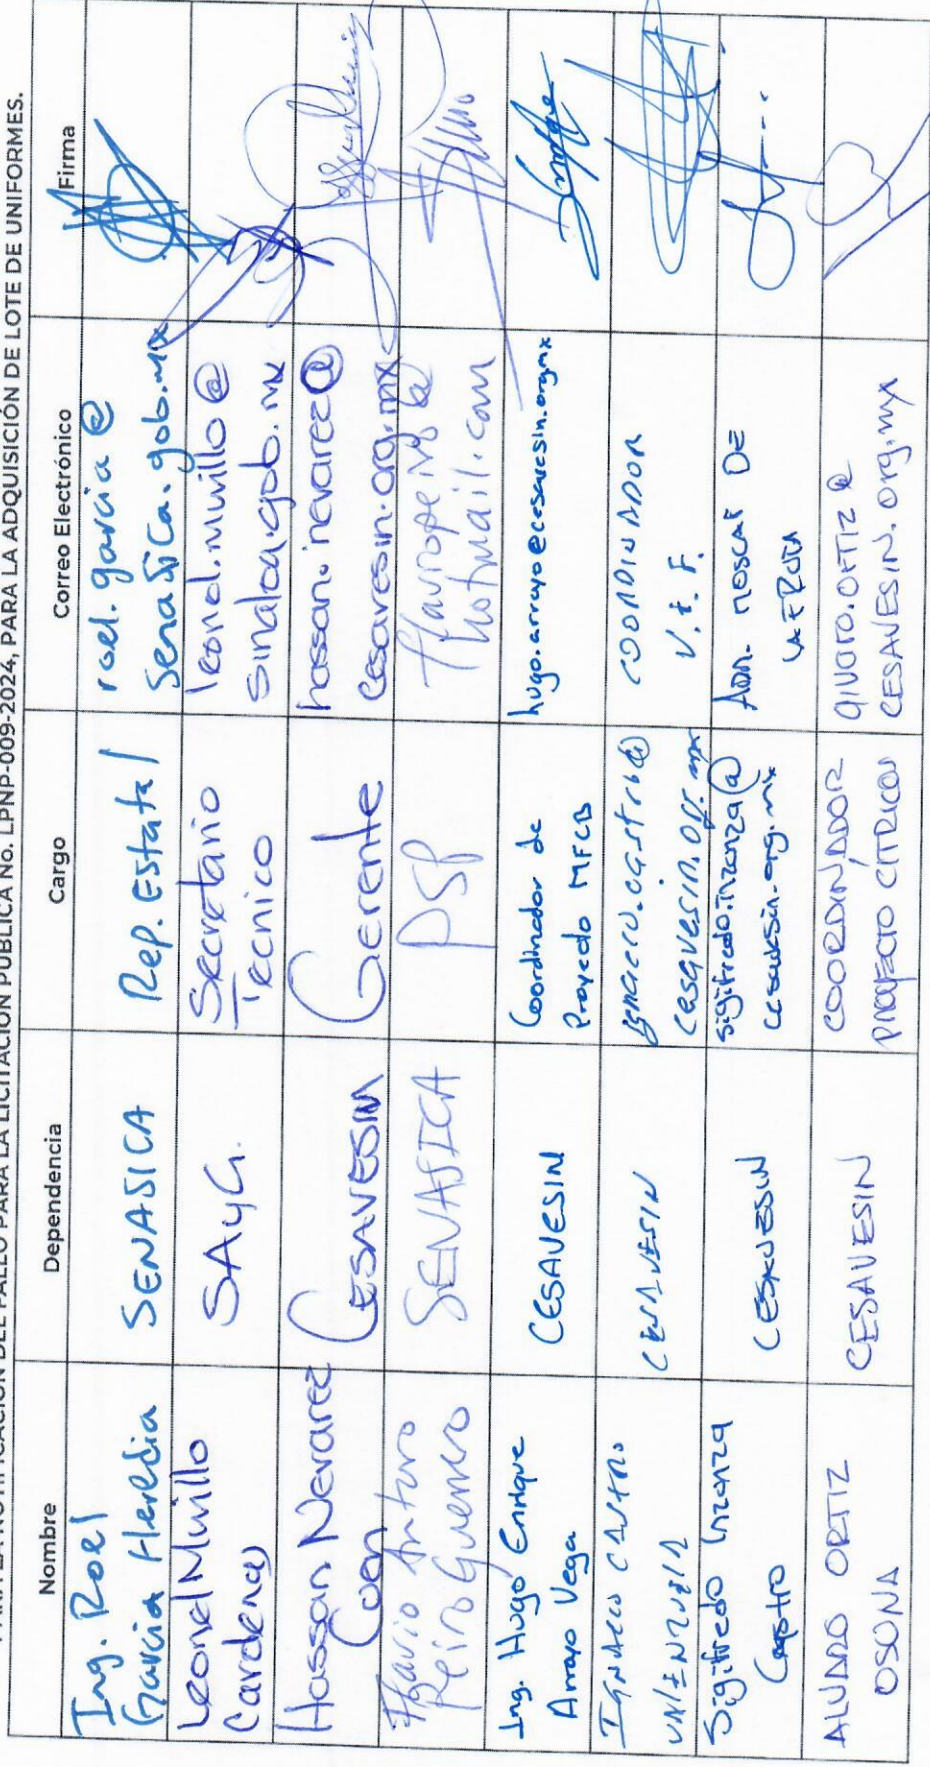 PARA LA NOTIFICACIÓN DEL FALLO PARA LA LICITACIÓN PÚBLICA No. LPNP-009-2024, PARA LA ADQUISICIÓN DE LOTE DE UNIFORMES.
Nombre Dependencia Cargo Correo Electrónico Firma
Ing. Roel
García Heredia
SENASICA
Rep. Estatal
roel.garcia@
senasica.gob.mx
Leonel Murillo
Cardenas
SAyG.
Secretario
Tecnico
leonel.murillo@
sinaloa.gob.mx
Hassan Nevarez
Coen
CESAVESIN
Gerente
hassan.nevarez@
cesavesin.org.mx
Flavio Antero
Peiro Guerrero
SENASICA
PSP
flaviopeiro@
hotmail.com
Ing. Hugo Enrique
Arroyo Vega
CESAVESIN
Coordinador de
Proyecto MFCB
hugo.arroyo@cesavesin.org.mx
IGNACIO CASTRO
VALENZUELA
CESAVESIN
ignacio.castro@
cesavesin.org.mx
COORDINADOR
V.E.F.
Sigifredo Inzunza
Castro
CESAVESIN
sigifredo.inzunza@
cesavesin.org.mx
ADM. MOSCAS DE
LA FRUTA
ALVARO ORTIZ
OSUNA
CESAVESIN
COORDINADOR
PROYECTO CITRICOS
alvaro.ortiz@
CESAVESIN.org.mx